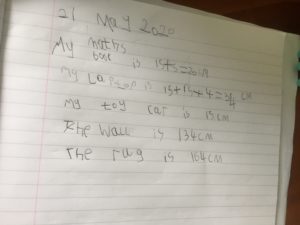 21 May 2020
My maths
book is 15+5=20cm
my Laptop is 15+15+4=34 cm
my toy car is 15cm
The wall is 134cm
The rug is 164cm